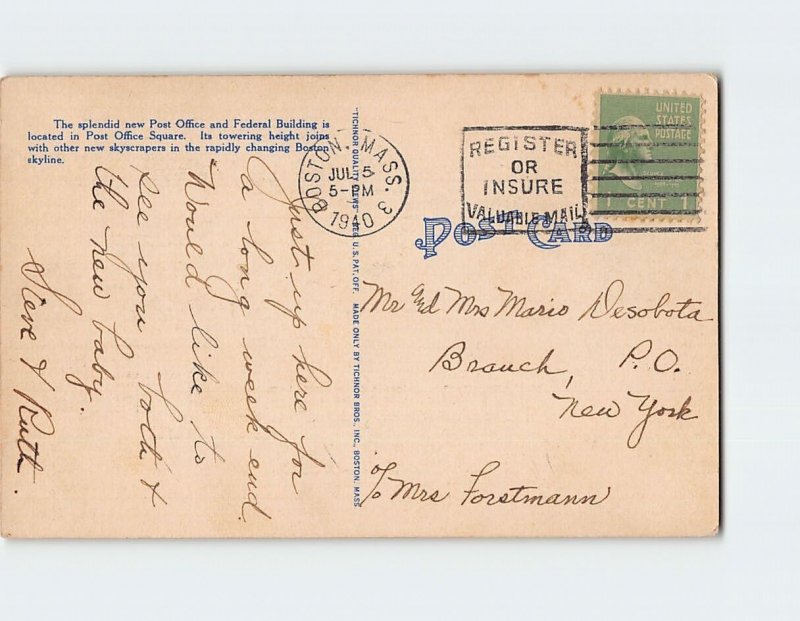 The splendid new Post Office and Federal Building is
located in Post Office Square. Its towering height joins
with other new skyscrapers in the rapidly changing Boston
skyline.
"TICHNOR QUALITY VIEWS" REG. U.S. PAT. OFF. MADE ONLY BY TICHNOR BROS. INC., BOSTON, MASS.
BOSTON, MASS.
JUL 5
5-PM
1940
3
REGISTER
OR
INSURE
VALUABLE MAIL
UNITED
STATES
POSTAGE
1 CENT 1
POST CARD
Just up here for
a long week end.
Would like to
see you both &
the new baby.
Steve & Ruth.
Mr and Mrs Mario Desobota
Branch, P.O.
New York
c/o Mrs Forstmann